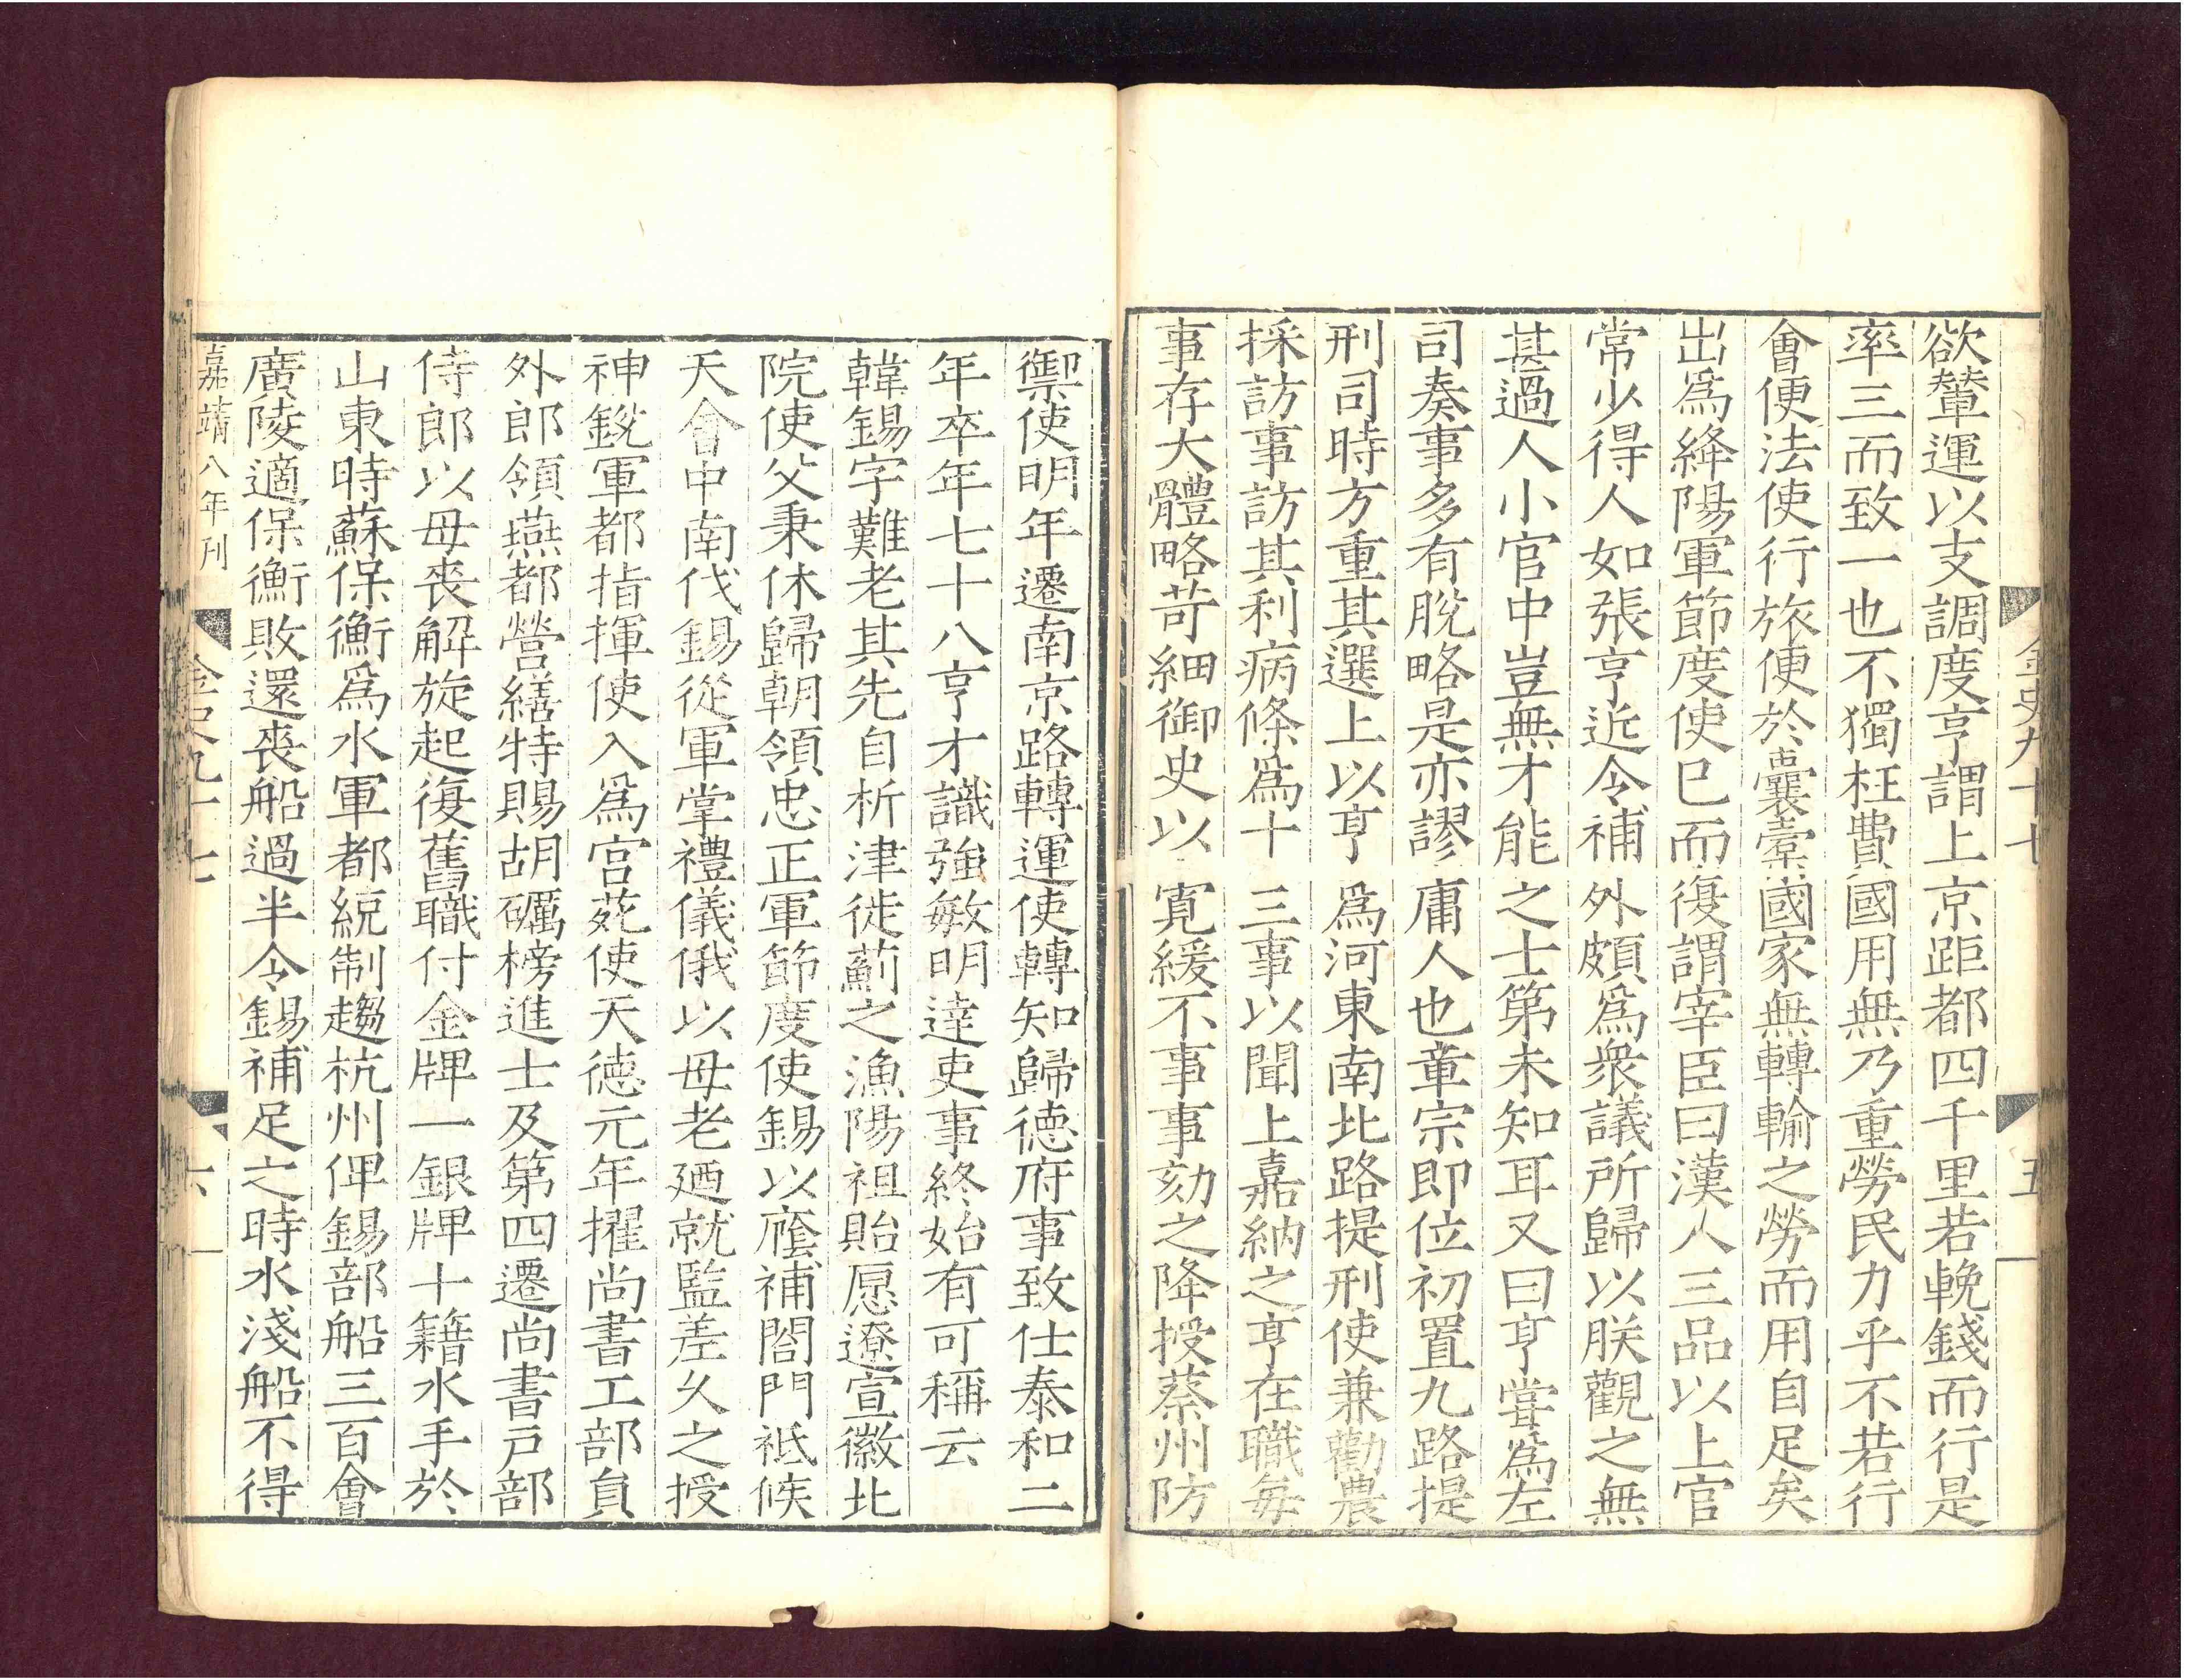 金史九十七
五
欲輦運以支調度亨謂上京距都四千里若輓錢而行是
率三而致一也不獨枉費國用無乃重勞民力乎不若行
會便法使行旅便於囊橐國家無轉輸之勞而用自足矣
出爲絳陽軍節度使巳而復謂宰臣曰漢人三品以上官
常少得人如張亨近令補外頗爲衆議所歸以朕觀之無
甚過人小官中豈無才能之士第未知耳又曰亨嘗爲左
司奏事多有脫略是亦謬庸人也章宗即位初置九路提
刑司時方重其選上以亨爲河東南北路提刑使兼勸農
採訪事訪其利病條爲十三事以聞上嘉納之亨在職每
事存大體略苛細御史以寛緩不事事劾之降授蔡州防
禦使明年遷南京路轉運使轉知歸德府事致仕泰和二
年卒年七十八亨才識強敏明達吏事終始有可稱云
韓錫字難老其先自析津徙薊之漁陽祖貽愿遼宣徽北
院使父秉休歸朝領忠正軍節度使錫以廕補閤門祗候
天會中南伐錫從軍掌禮儀俄以母老廼就監差久之授
神銳軍都指揮使入爲宮苑使天德元年擢尚書工部員
外郎領燕都營繕特賜胡礪榜進士及第四遷尚書戶部
侍郎以母喪解旋起復舊職付金牌一銀牌十籍水手於
山東時蘇保衡爲水軍都統制趨杭州俾錫部船三百會
廣陵適保衡敗還喪船過半令錫補足之時水淺船不得
嘉靖八年刊
金史九十七
六